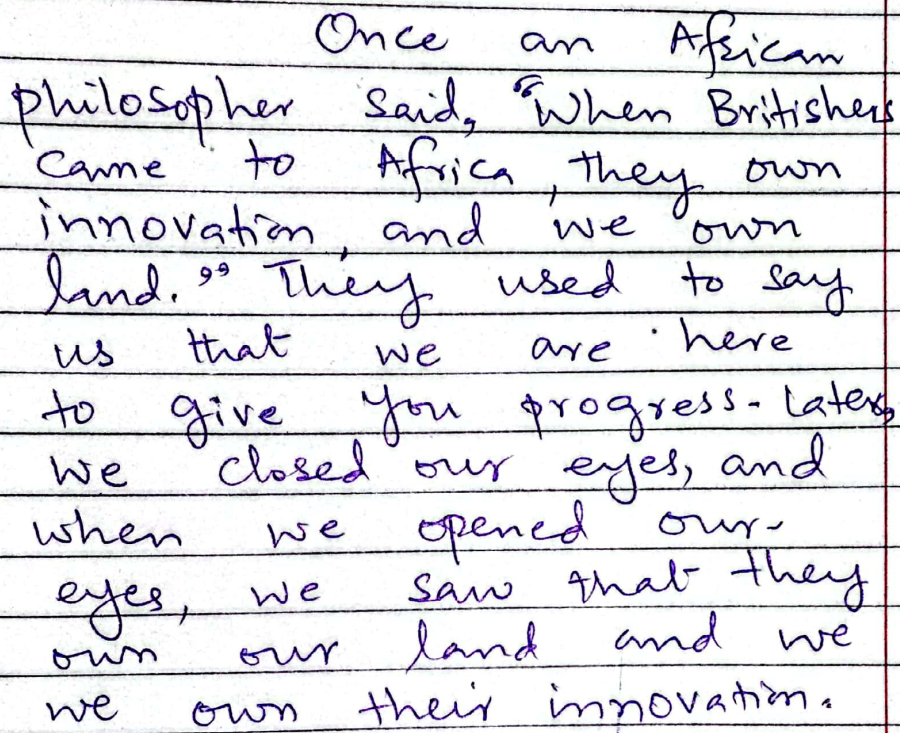 Once an African
philosopher said, "When Britishers
came to Africa, they own
innovation, and we own
land." They used to say
us that we are here
to give you progress. Later,
we closed our eyes, and
when we opened our
eyes, we saw that they
own our land and we
we own their innovation.